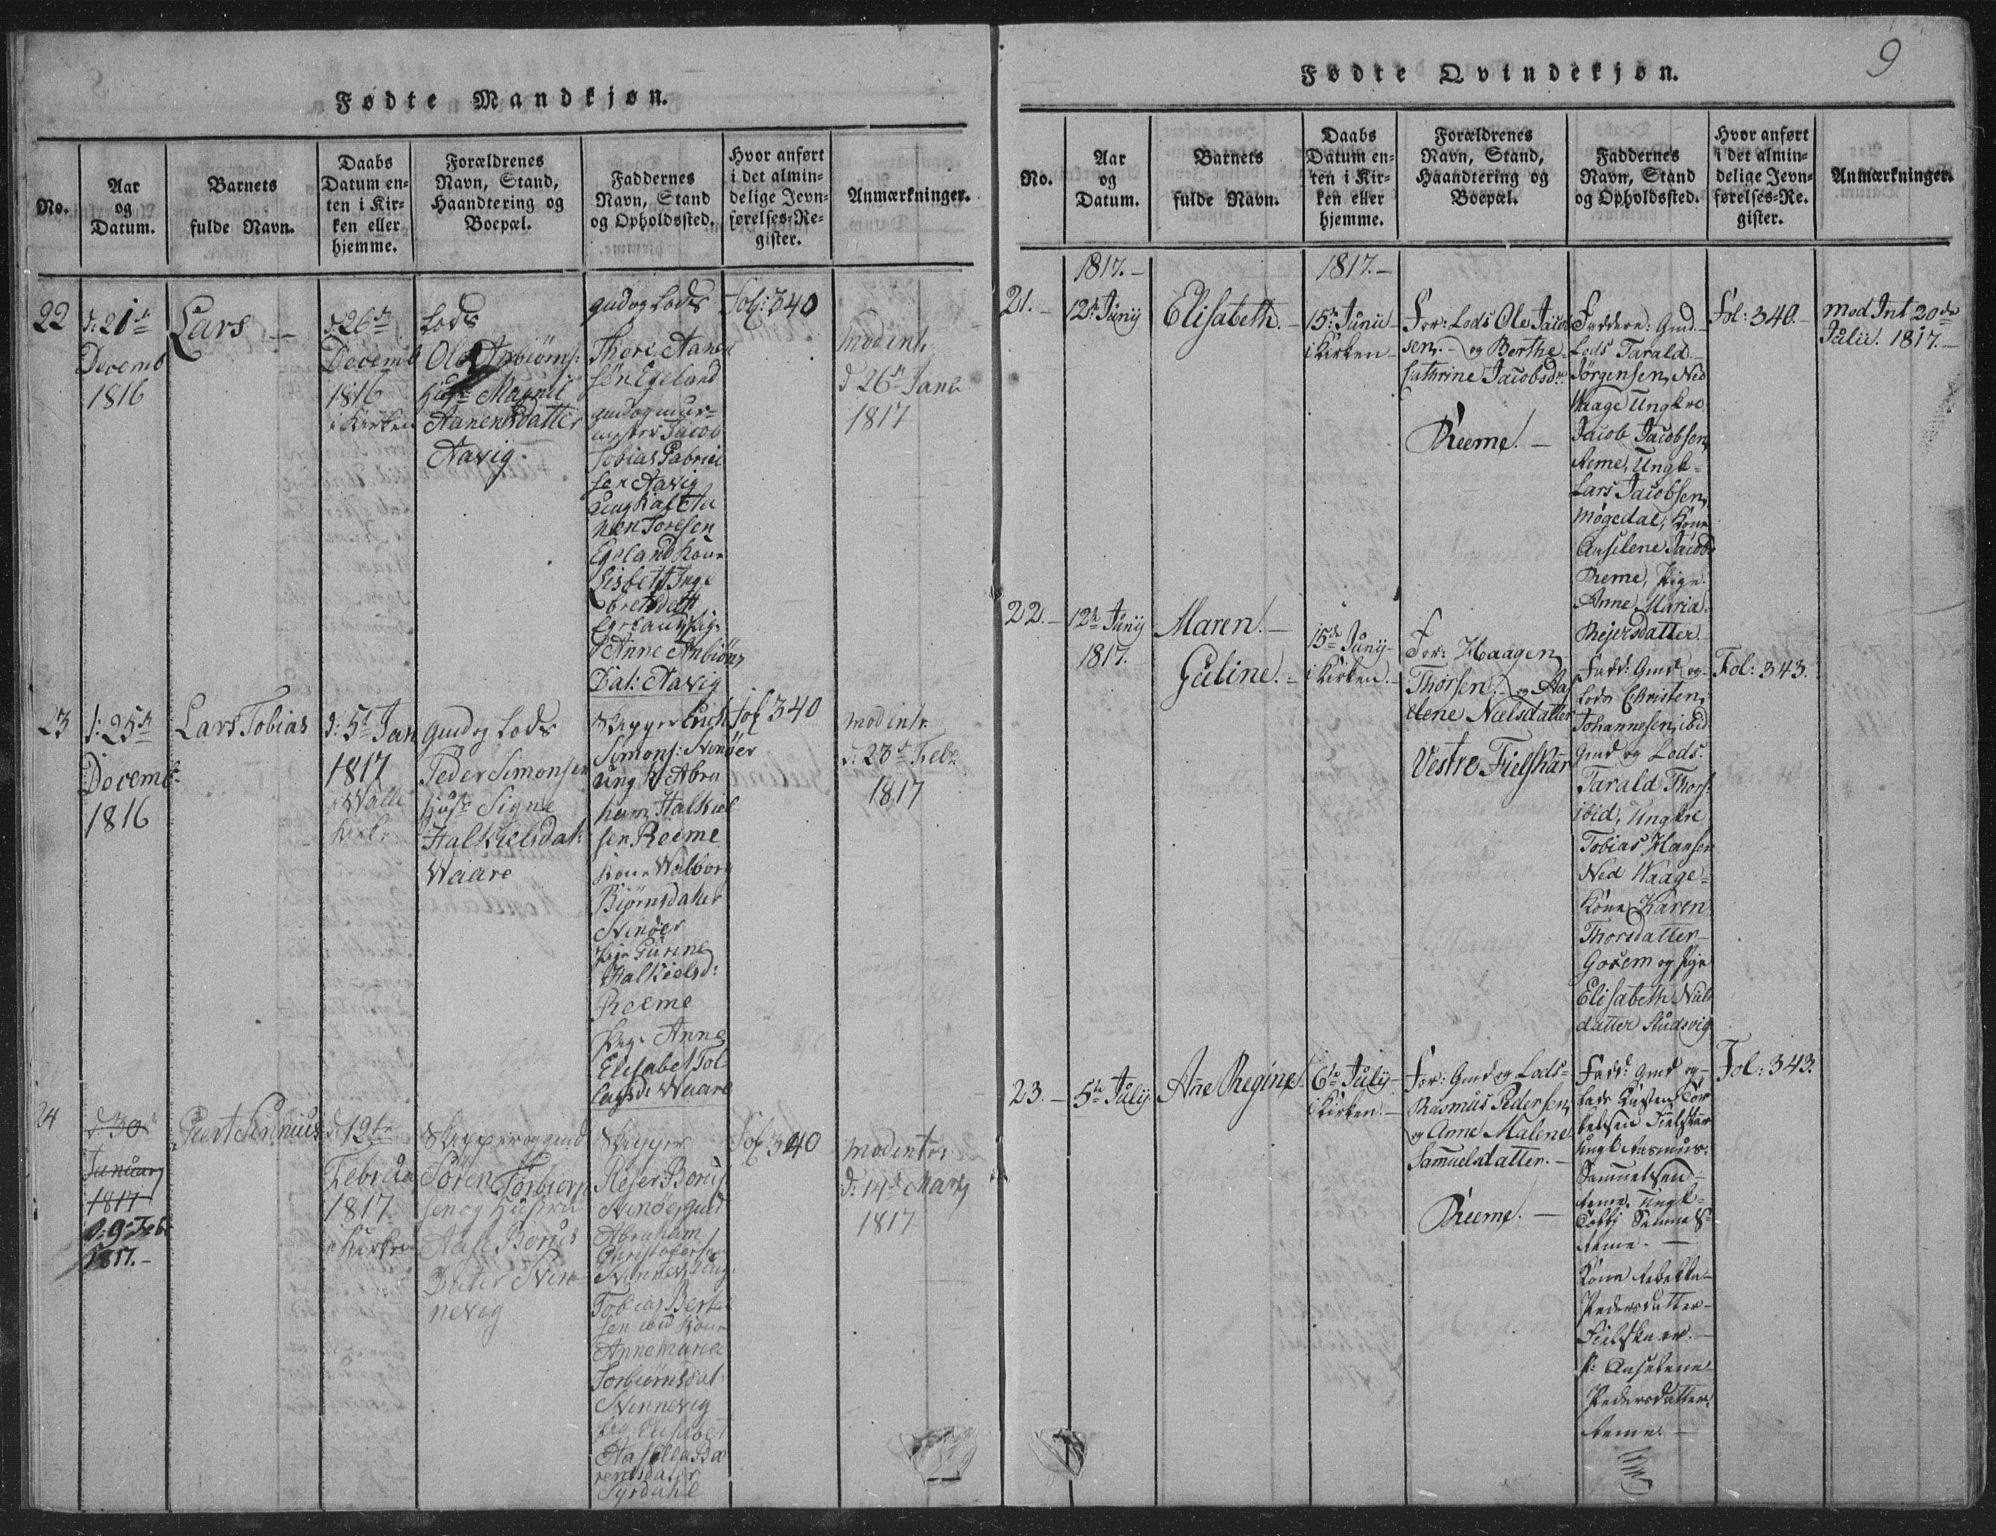 Fødte Mandkjøn.
No.
Aar
og
Datum.
Barnets
fulde Navn.
Daabs
Datum en-
ten i Kir-
ken eller
hjemme.
Forældrenes
Navn, Stand,
Haandtering og
Boepæl.
Faddernes
Navn, Stand
og Opholdssted.
Hvor anført
i det almin-
delige Jevn-
førelses-Re-
gister.
Anmærkninger.
22
d: 21de
Decemb
1816
Lars
d 26de
Decemb
1816
i Kirken
Lods
Ole Anbiørns:
Hust Magnil
Aanensdatter
Aavig
gmd og Lods
Thore Aanen
søn Egeland
gmd og mur-
mester Jacob
Tobias Gabriel
sen Aavig
Ungkal Aa
nen Toresen
Egeland Kone
Lisbett Inge
bretsdatt
Egeland Pig.
Anne Anbiøns
Dat: Aavig
Fol: 340
mod intr
d 26de Janu
1817
23
d: 25de
Decemb
1816
Lars Tobias
d: 5te Jan
1817
i Walle
Kirke
gmd og Lods
Peder Simonsen
Hust Signe
Halkielsdat:
Waare
Skipper Erich
Simons: Svinøer
Ung K Abra
ham Halkiel
sen Reeme
Kone Walborg
Biørnsdater
Svinøer
Pige Gurine
Halkielsd:
Reeme
Pige Anne
Elisabet Tol
lagsd: Waare
Fol 340
mod intr
d: 23de Febr
1817
24
d 30
Januarj
1817
d. 9de Febr
1817.-
Giert Severinius
d 12te
Februar
1817
i Kirken
Skipper og gmd
Søren Torbiørn
sen og Hustru
Aase Borus
Dater Svin
nevig
Skipper
Reier Borus
Svinøer gmd
Abraham
Christofersen
Svinnevig Ung
Tobias Bert
sen ibid Kone
Anne Maria
Torbiørnsdat
Svinnevig
Pige Elisabet
Aasille Ba
rentsdater
Syrdahl
Fol 340
mod intr:
d: 14de Marti
1817
9
Fødte Qvindekjøn.
No.
Aar
og
Datum.
Barnets
fulde Navn.
Daabs
Datum en-
ten i Kir-
ken eller
hjemme.
Forældrenes
Navn, Stand,
Haandtering og
Boepæl.
Faddernes
Navn, Stand
og Opholdssted.
Hvor anført
i det almin-
delige Jevn-
førelses-Re-
gister.
Anmærkninger.
21.-
1817.-
12te Junij
Elisabeth.-
1817.-
15de Junii
i Kirken-
For: Lods Ole Jacob
sen.- og Berthe
Cathrine Jacobsdr.
Reeme.-
Faddere: Gmd-
Lods Tarald
Jørgensen, Ned
Waage Ungkre
Jacob Jacobsen,
Reme, Ungk-
Lars Jacobsen,
Møgedal, Kone
Anselene Jacobs
Reme, Pige.
Anne Maria
Rejersdatter
Fol: 340.-
mod Int 20de
Julii. 1817.-
22.-
12te Junij
1817.
Maren.-
Guline.-
15de Junij-
i Kirken.-
For: Haagen
Thorsen og Aas
elene Nielsdatter
Vestre Fielskar
Fadd: Gmd og
Lods Christen
Johannesen, ibid
Gmd og Lods.
Tarald Thors:
ibid, Ungkre
Tobias Hansen
Ned Waage-
Kone Karen
Thorsdatter-
Gosem og Pige
Elisabeth Niels
datter Studsvig
Fol: 343.
23.-
5te Julij
Ane Regine.
6te Julij
i Kirken.-
For: Gmd og Lods-
Rasmus Pedersen,
og Anne Malene
Samuelsdatter.-
Reeme.-
Fadd: Gmd og-
Lods Kisten Tør
kelsen Fielskar
Ungk Rasmus:
Samuelsen-
Reme. Ungk-
Tobbj Samuels.
Reme.-
Kone Rebekka
Pedersdatter-
Fielskaar.-
P: Anselene
Pedersdatter
Reme.-
Fol: 343.